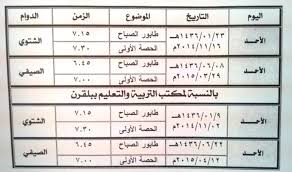 اليوم التاريخ الموضوع الزمن الدوام
الأحد ١٤٣٦/٠١/٢٣هـ طابور الصباح ٧.١٥ الشتوي
٢٠١٤/١١/١٦م الحصة الأولى ٧.٣٠
الأحد ١٤٣٦/٠٦/٠٨هـ طابور الصباح ٦.٤٥ الصيفي
٢٠١٥/٠٣/٢٩م الحصة الأولى ٧.٠٠
بالنسبة لمكتب التربية والتعليم ببلقرن
الأحد ١٤٣٦/٠١/٩هـ طابور الصباح ٧.١٥ الشتوي
٢٠١٤/١١/٠٢م الحصة الأولى ٧.٣٠
الأحد ١٤٣٦/٠٦/٢٢هـ طابور الصباح ٦.٤٥ الصيفي
٢٠١٥/٠٤/١٢م الحصة الأولى ٧.٠٠